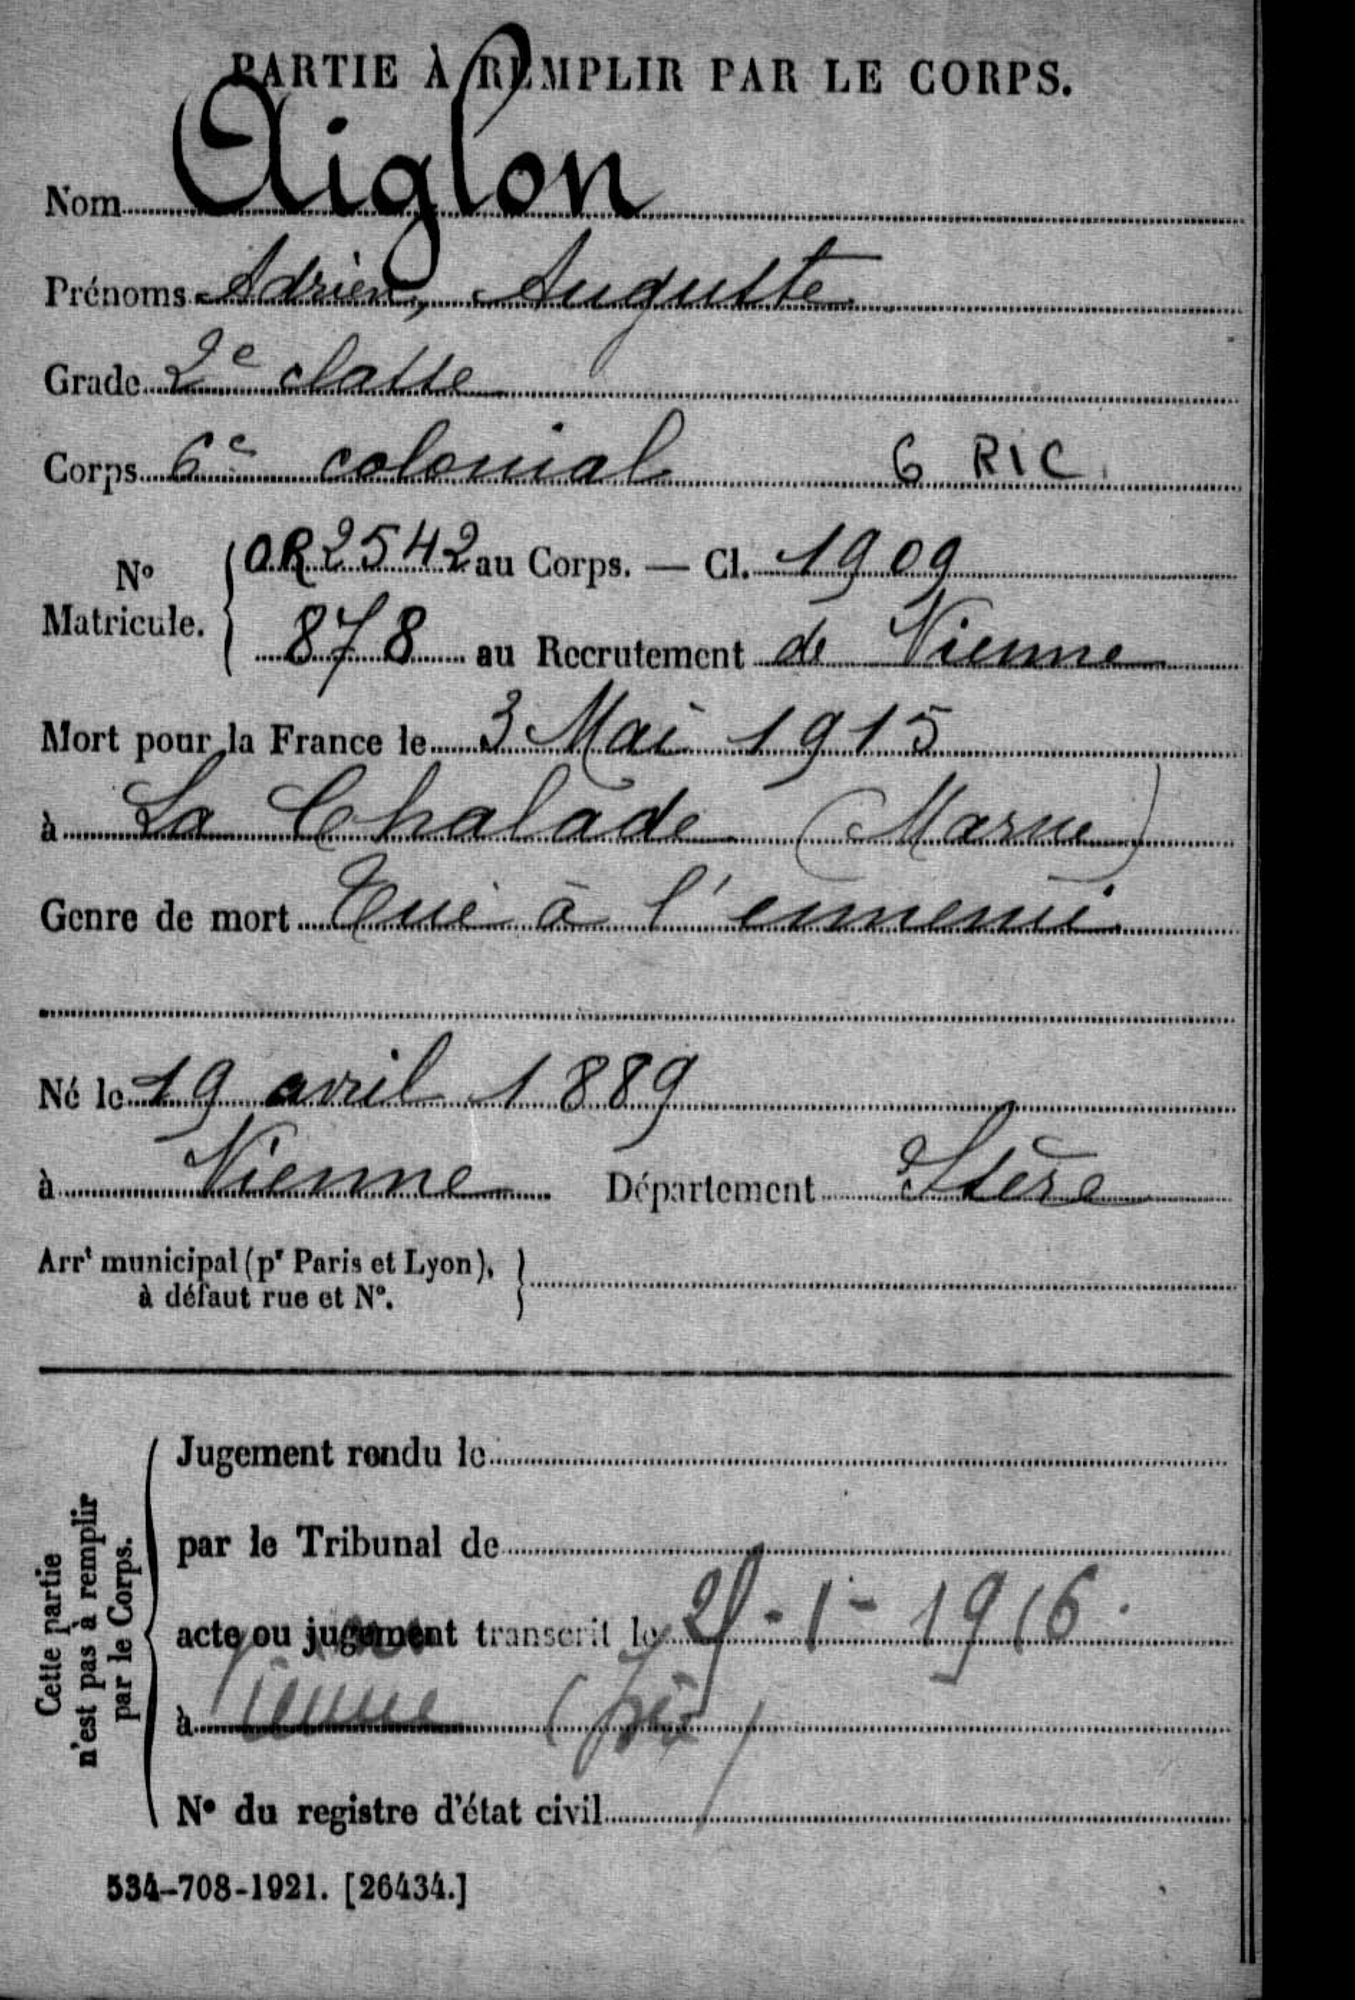 PARTIE À REMPLIR PAR LE CORPS.
Nom Aiglon
Prénoms Adrien, Auguste
Grade 2e classe
Corps 6e colonial 6 RIC.
No Matricule. OR 2542 au Corps. — Cl. 1909
878 au Recrutement de Vienne
Mort pour la France le 3 Mai 1915
à La Chalade (Marne)
Genre de mort Tué à l'ennemi
Né le 19 avril 1889
à Vienne Département Isère
Arrt municipal (pr Paris et Lyon),
à défaut rue et No.
Cette partie
n'est pas à remplir
par le Corps.
Jugement rendu le
par le Tribunal de
acte ou jugement transcrit le -1-1916.
à Vienne (Isère)
No du registre d'état civil
534-708-1921. [26434.]